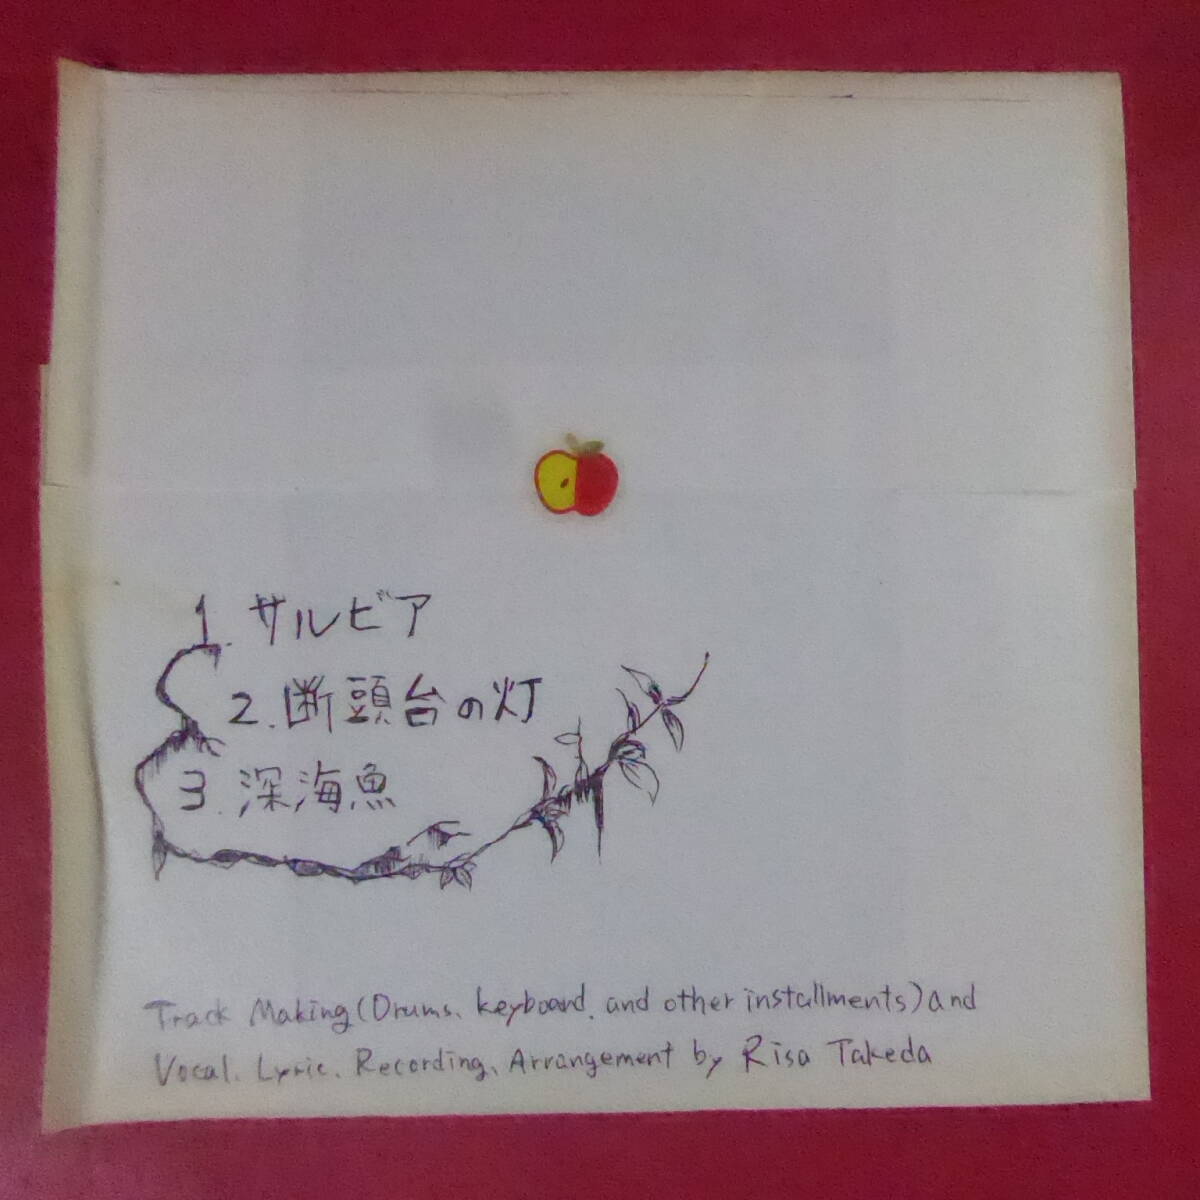 1. サルビア
2. 断頭台の灯
3. 深海魚
Track Making (Drums、keyboard、and other installments) and
Vocal、Lyric、Recording、Arrangement by Risa Takeda